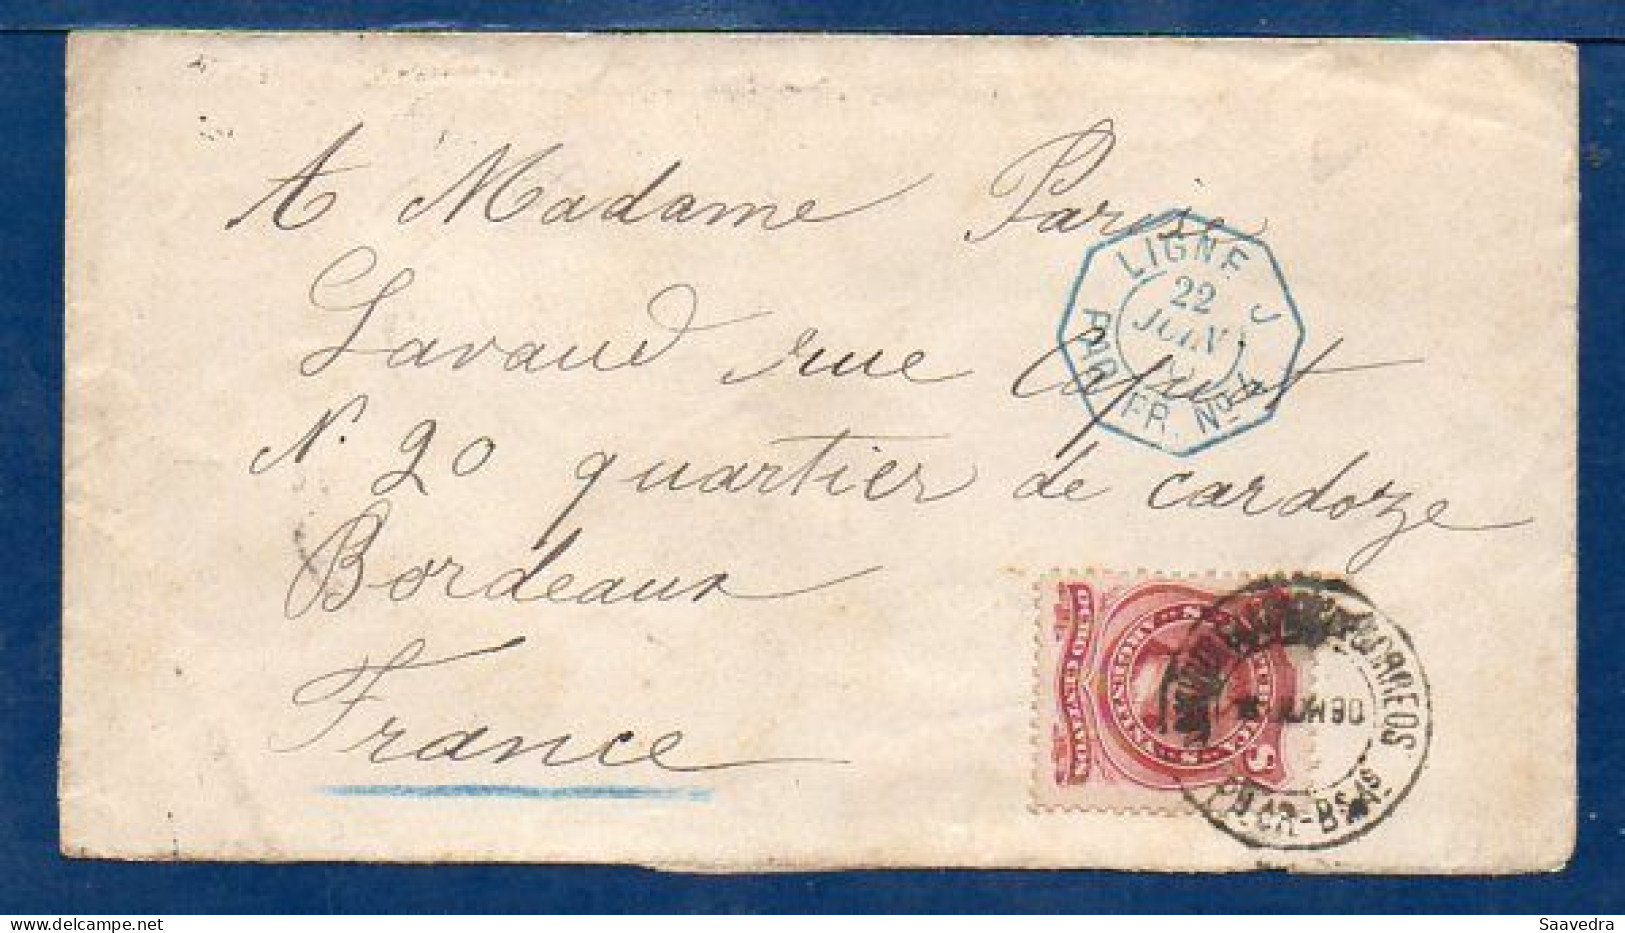 A Madame Parise
Lavaud rue
N. 20 quartier de cardoze
Bordeaux
France
LIGNE J
22
JUIN
PAQ. FR. No 4
CORREOS
JUN 90
Bs As
Saavedra